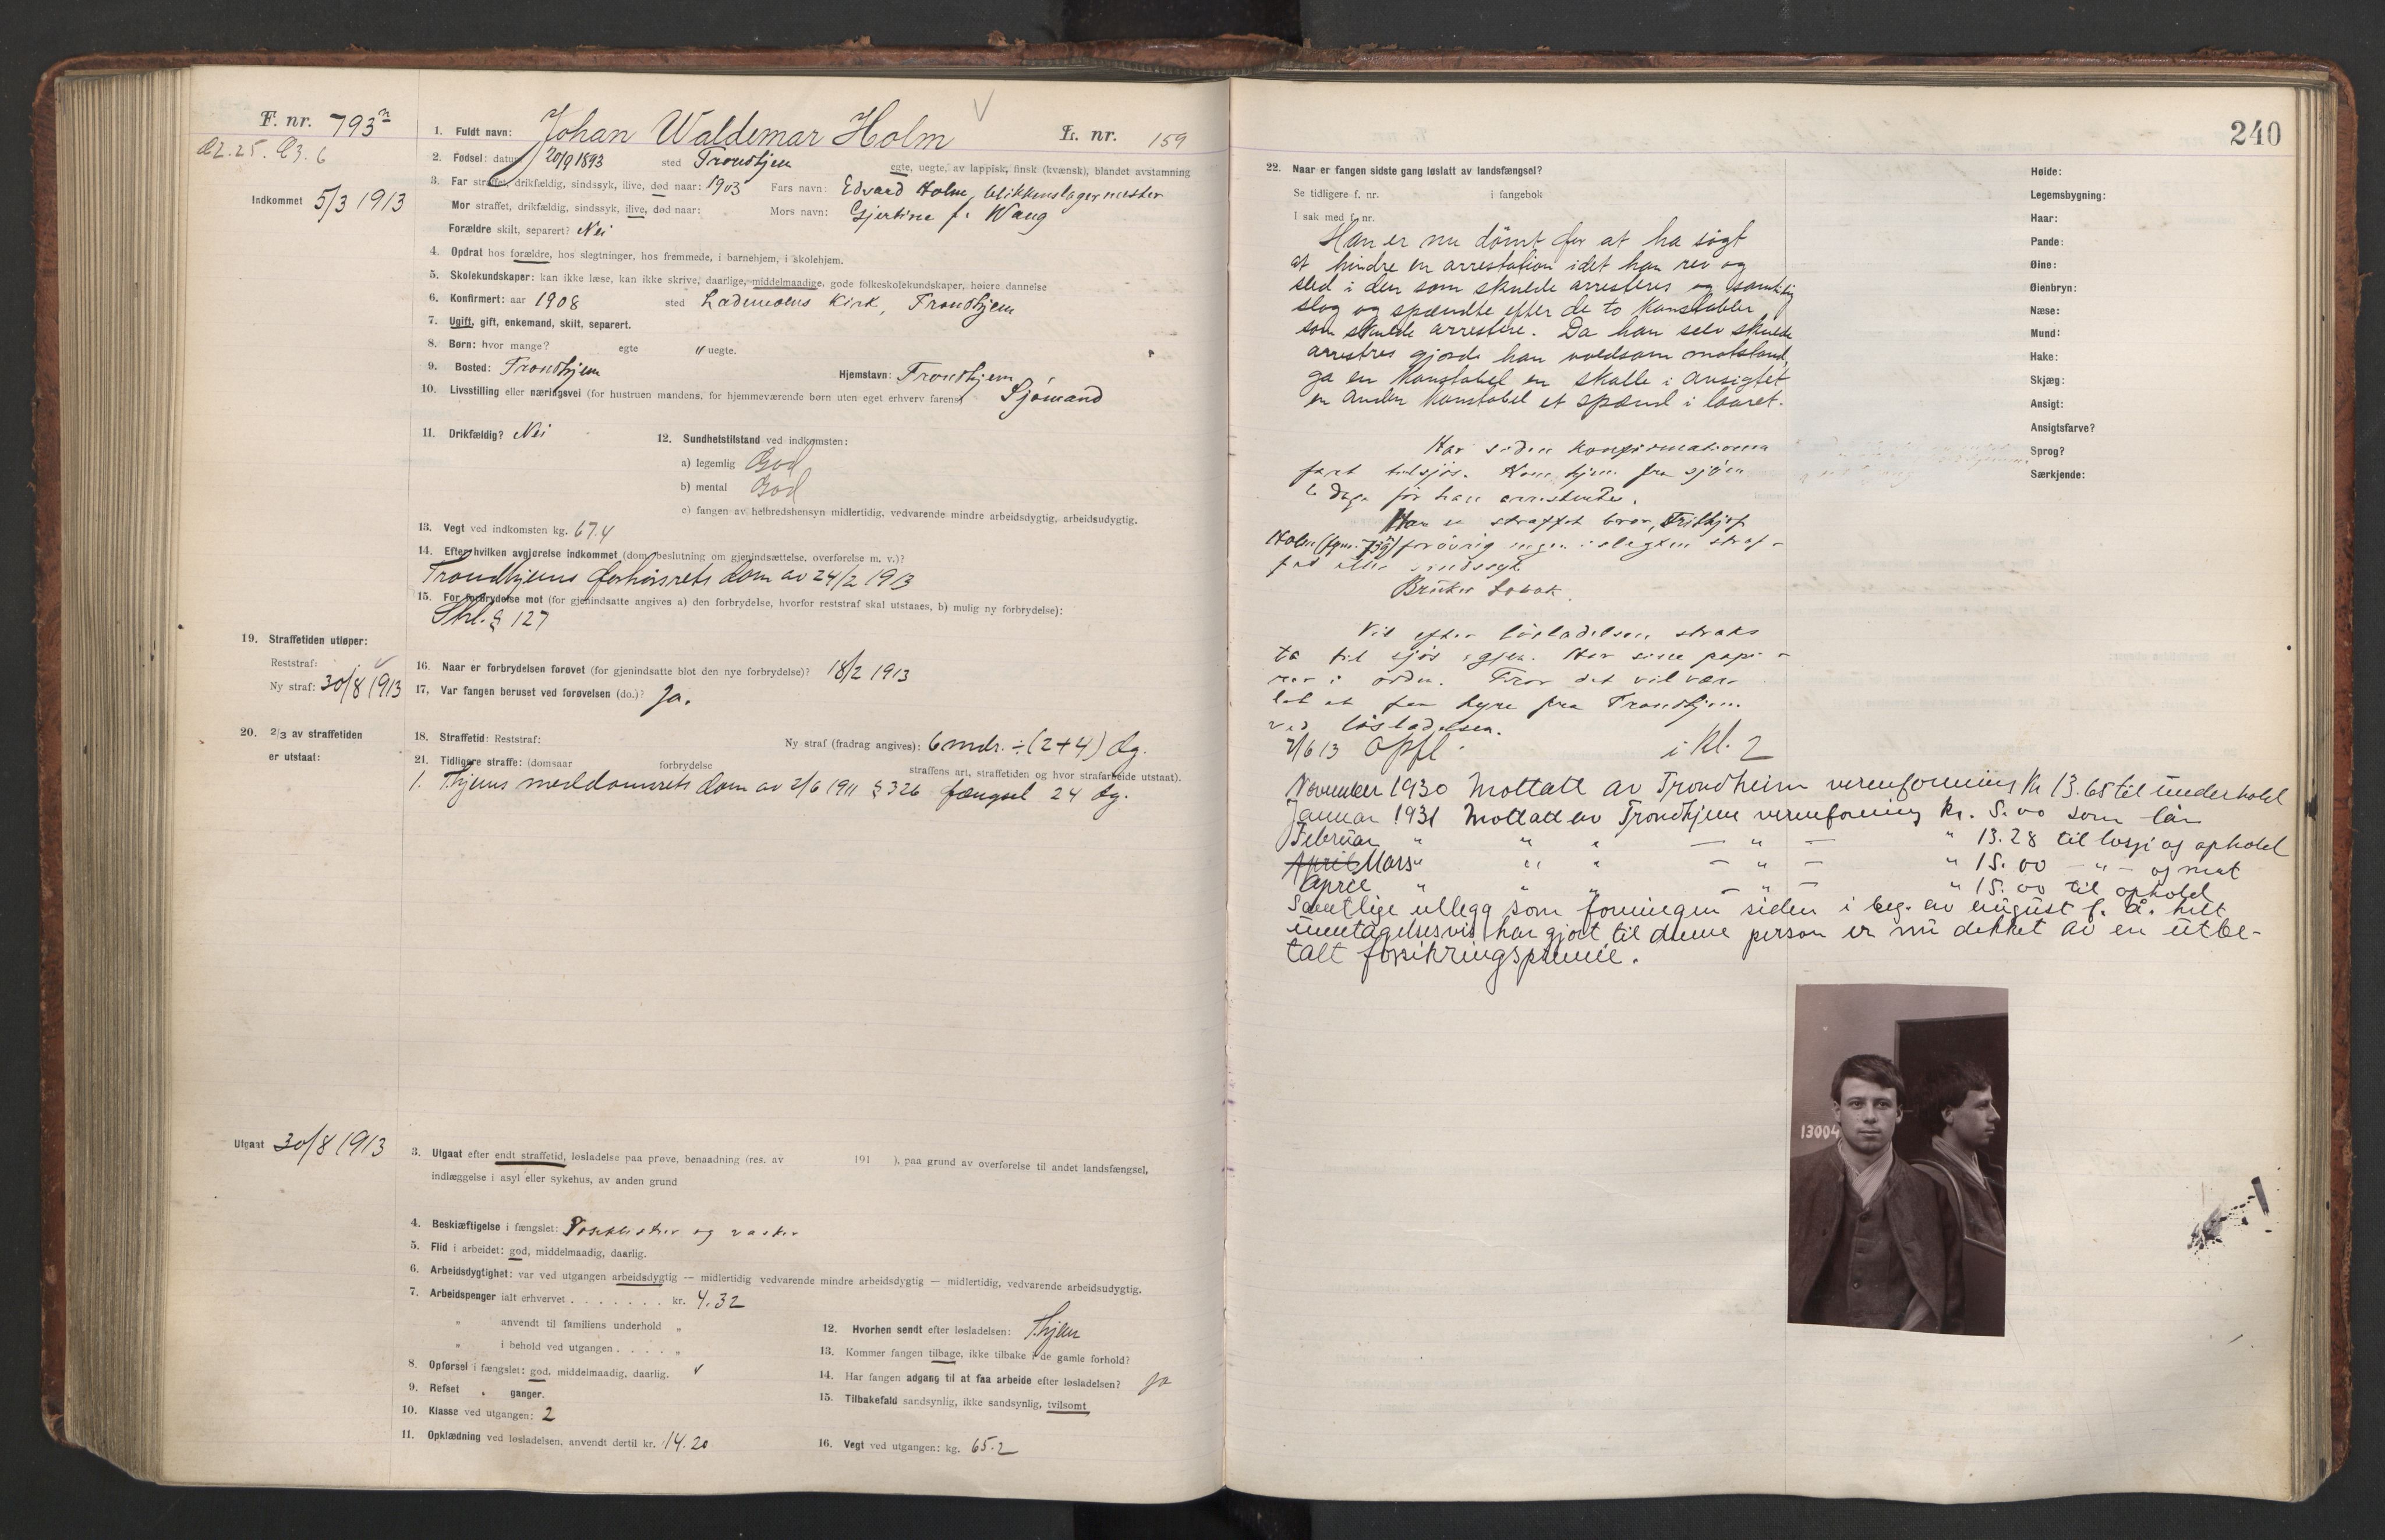 F. nr. 793
A2.25. A3.6
1. Fuldt navn: Johan Waldemar Holm L. nr. 159
2. Fødsel: datum 20/9 1893 sted Trondhjem egte, uegte, av lappisk, finsk (kvænsk), blandet avstamning
Indkommet 5/3 1913
3. Far straffet, drikfældig, sindssyk, ilive, død naar: 1903 Fars navn: Edvard Holm, blikkenslagermester
Mor straffet, drikfældig, sindssyk, ilive, død naar: Mors navn: Gjertine f. Wang
Forældre skilt, separert? Nei
4. Opdrat hos forældre, hos slegtninger, hos fremmede, i barnehjem, i skolehjem.
5. Skolekundskaper: kan ikke læse, kan ikke skrive, daarlige, middelmaadige, gode folkeskolekundskaper, høiere dannelse
6. Konfirmert: aar 1908 sted Lademoens Kirk, Trondhjem
7. Ugift, gift, enkemand, skilt, separert.
8. Børn: hvor mange? egte " uegte.
9. Bosted: Trondhjem Hjemstavn: Trondhjem
10. Livsstilling eller næringsvei (for hustruen mandens, for hjemmeværende børn uten eget erhverv farens) Sjømand
11. Drikfældig? Nei 12. Sundhetstilstand ved indkomsten:
a) legemlig God
b) mental God
c) fangen av helbredshensyn midlertidig, vedvarende mindre arbeidsdygtig, arbeidsudygtig.
13. Vegt ved indkomsten kg. 67.4
14. Efter hvilken avgjørelse indkommet (dom, beslutning om gjenindsættelse, overførelse m. v.)?
Trondhjems forhørsrets dom av 24/2 1913
15. For forbrydelse mot (for gjenindsatte angives a) den forbrydelse, hvorfor reststraf skal utstaaes, b) mulig ny forbrydelse):
Strl. § 127
19. Straffetiden utløper:
Reststraf:
Ny straf: 30/8 1913
16. Naar er forbrydelsen forøvet (for gjenindsatte blot den nye forbrydelse)? 18/2 1913
17. Var fangen beruset ved forøvelsen (do.)? Ja.
20. 2/3 av straffetiden
er utstaat:
18. Straffetid: Reststraf: Ny straf (fradrag angives): 6 mdr. ÷ (2+4) dg.
21. Tidligere straffe: (domsaar forbrydelse straffens art, straffetiden og hvor strafarbeide utstaat).
1. Thjems meddomsrets dom av 2/6 1911 § 326 fængsel 24 dg.
Utgaat 30/8 1913
3. Utgaat efter endt straffetid, løsladelse paa prøve, benaadning (res. av 191 ), paa grund av overførelse til andet landsfængsel,
indlæggelse i asyl eller sykehus, av anden grund
4. Beskjæftigelse i fængslet: og vasker
5. Flid i arbeidet: god, middelmaadig, daarlig.
6. Arbeidsdygtighet: var ved utgangen arbeidsdygtig — midlertidig vedvarende mindre arbeidsdygtig — midlertidig, vedvarende arbeidsudygtig.
7. Arbeidspenger ialt erhvervet . . . . . . . kr. 4.32
" anvendt til familiens underhold "
" i behold ved utgangen . . . . . "
8. Opførsel i fængslet: god, middelmaadig, daarlig.
9. Refset " ganger.
10. Klasse ved utgangen: 2
11. Opklædning ved løsladelsen, anvendt dertil kr. 14.20
12. Hvorhen sendt efter løsladelsen: Thjem
13. Kommer fangen tilbage, ikke tilbake i de gamle forhold?
14. Har fangen adgang til at faa arbeide efter løsladelsen? Ja
15. Tilbakefald sandsynlig, ikke sandsynlig, tvilsomt
16. Vegt ved utgangen: kg. 65.2
240
22. Naar er fangen sidste gang løslatt av landsfængsel?
Se tidligere f. nr. i fangebok
I sak med f. nr.
Han er nu dømt for at ha søgt
at hindre en arrestation idet han rev og
sled i den som skulde arresteres og samtidig
slog og spændte efter de to Konstabler
som skulde arrestere. Da han selv skulde
arrestres gjorde han voldsom motstand,
ga en Konstabel en skalle i ansigtet
en anden Konstabel et spænd i laaret.
Har siden Konfirmationen
fart tilsjøs. Kom hjem fra sjøen
dage før han arrestertes.
Har en straffet bror, Frithjof
Holm forøvrig ingen i slegten straf-
fed eller sindssyk
Bruker Tobak.
Vil efter løsladelsen straks
ta til sjøs igjen. Har sine papi-
rer i orden. Tror det vil være
let at faa hyre fra Trondhjem
ved løsladelsen.
7/6 13 Opfl. i Kl. 2
November 1930 Mottatt av Trondheim verneforening Kr 13.65 til underhold
Januar 1931 Mottatt av Trondhjems verneforening Kr. 5.00 som lån
Februar " " " — " — " 13.28 til losji og ophold
April Mars " " " — " — " 15.00 — " — og mat
April " " " — " — " 15.00 til ophold
Samtlige utlegg som foreningen siden i beg. av august f. å. helt
unntagelsesvis har gjort til denne person er nu dekket av en utbe-
talt forsikringspremie.
Høide:
Legemsbygning:
Haar:
Pande:
Øine:
Øienbryn:
Næse:
Mund:
Hake:
Skjæg:
Ansigt:
Ansigtsfarve?
Sprog?
Særkjende:
13004